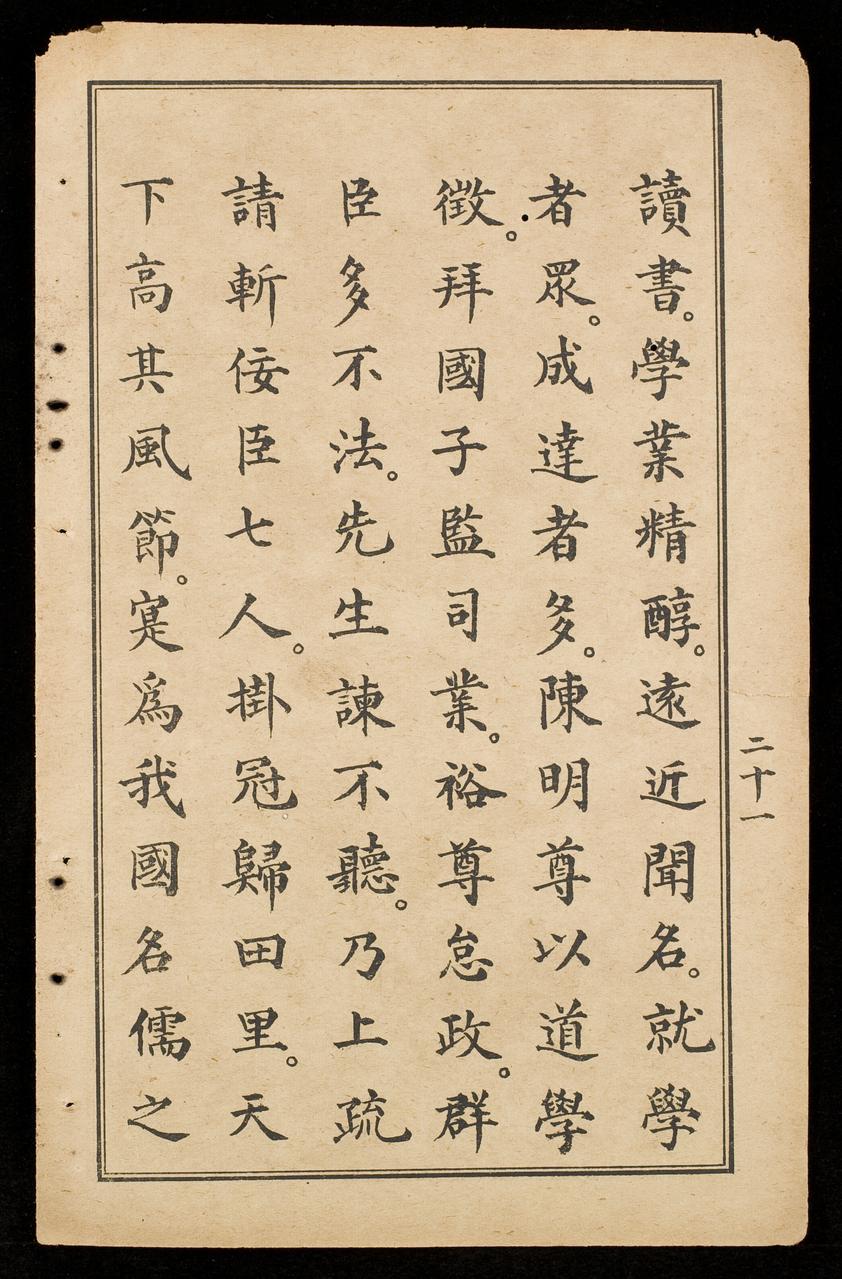 讀書。學業精醇。遠近聞名。就學
者眾。成達者多。陳明尊以道學
徵。拜國子監司業。裕尊怠政。群
臣多不法。先生諫不聽。乃上疏
請斬佞臣七人。掛冠歸田里。天
下高其風節。寔爲我國名儒之
二十一